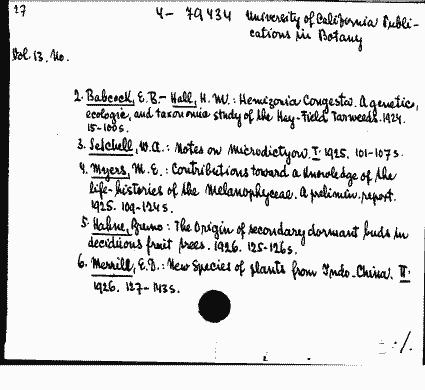 27
4- 79434 University of California Publi-
cations in Botany
Vol. 13. No.
2. Babcock, E.B. - Hall, H. M.: Hemizonia Congesta. A genetics,
ecologic, and taxonomic study of the Hay-Field Tarweeds. 1924.
15-100s.
3. Setchell, W.A.: Notes on Microdictyon I. 1925. 101-107s.
4. Myers, M. E.: Contributions toward a Knowledge of the
life-histories of the Melanophyceae. A prelimin. report.
1925. 109-124s.
5. Hahne, Bruno: The Origin of secondary dormant buds in
deciduous fruit trees. 1926. 125-126s.
6. Merrill, E.D.: New Species of plants from Indo-China. II.
1926. 127-143s.